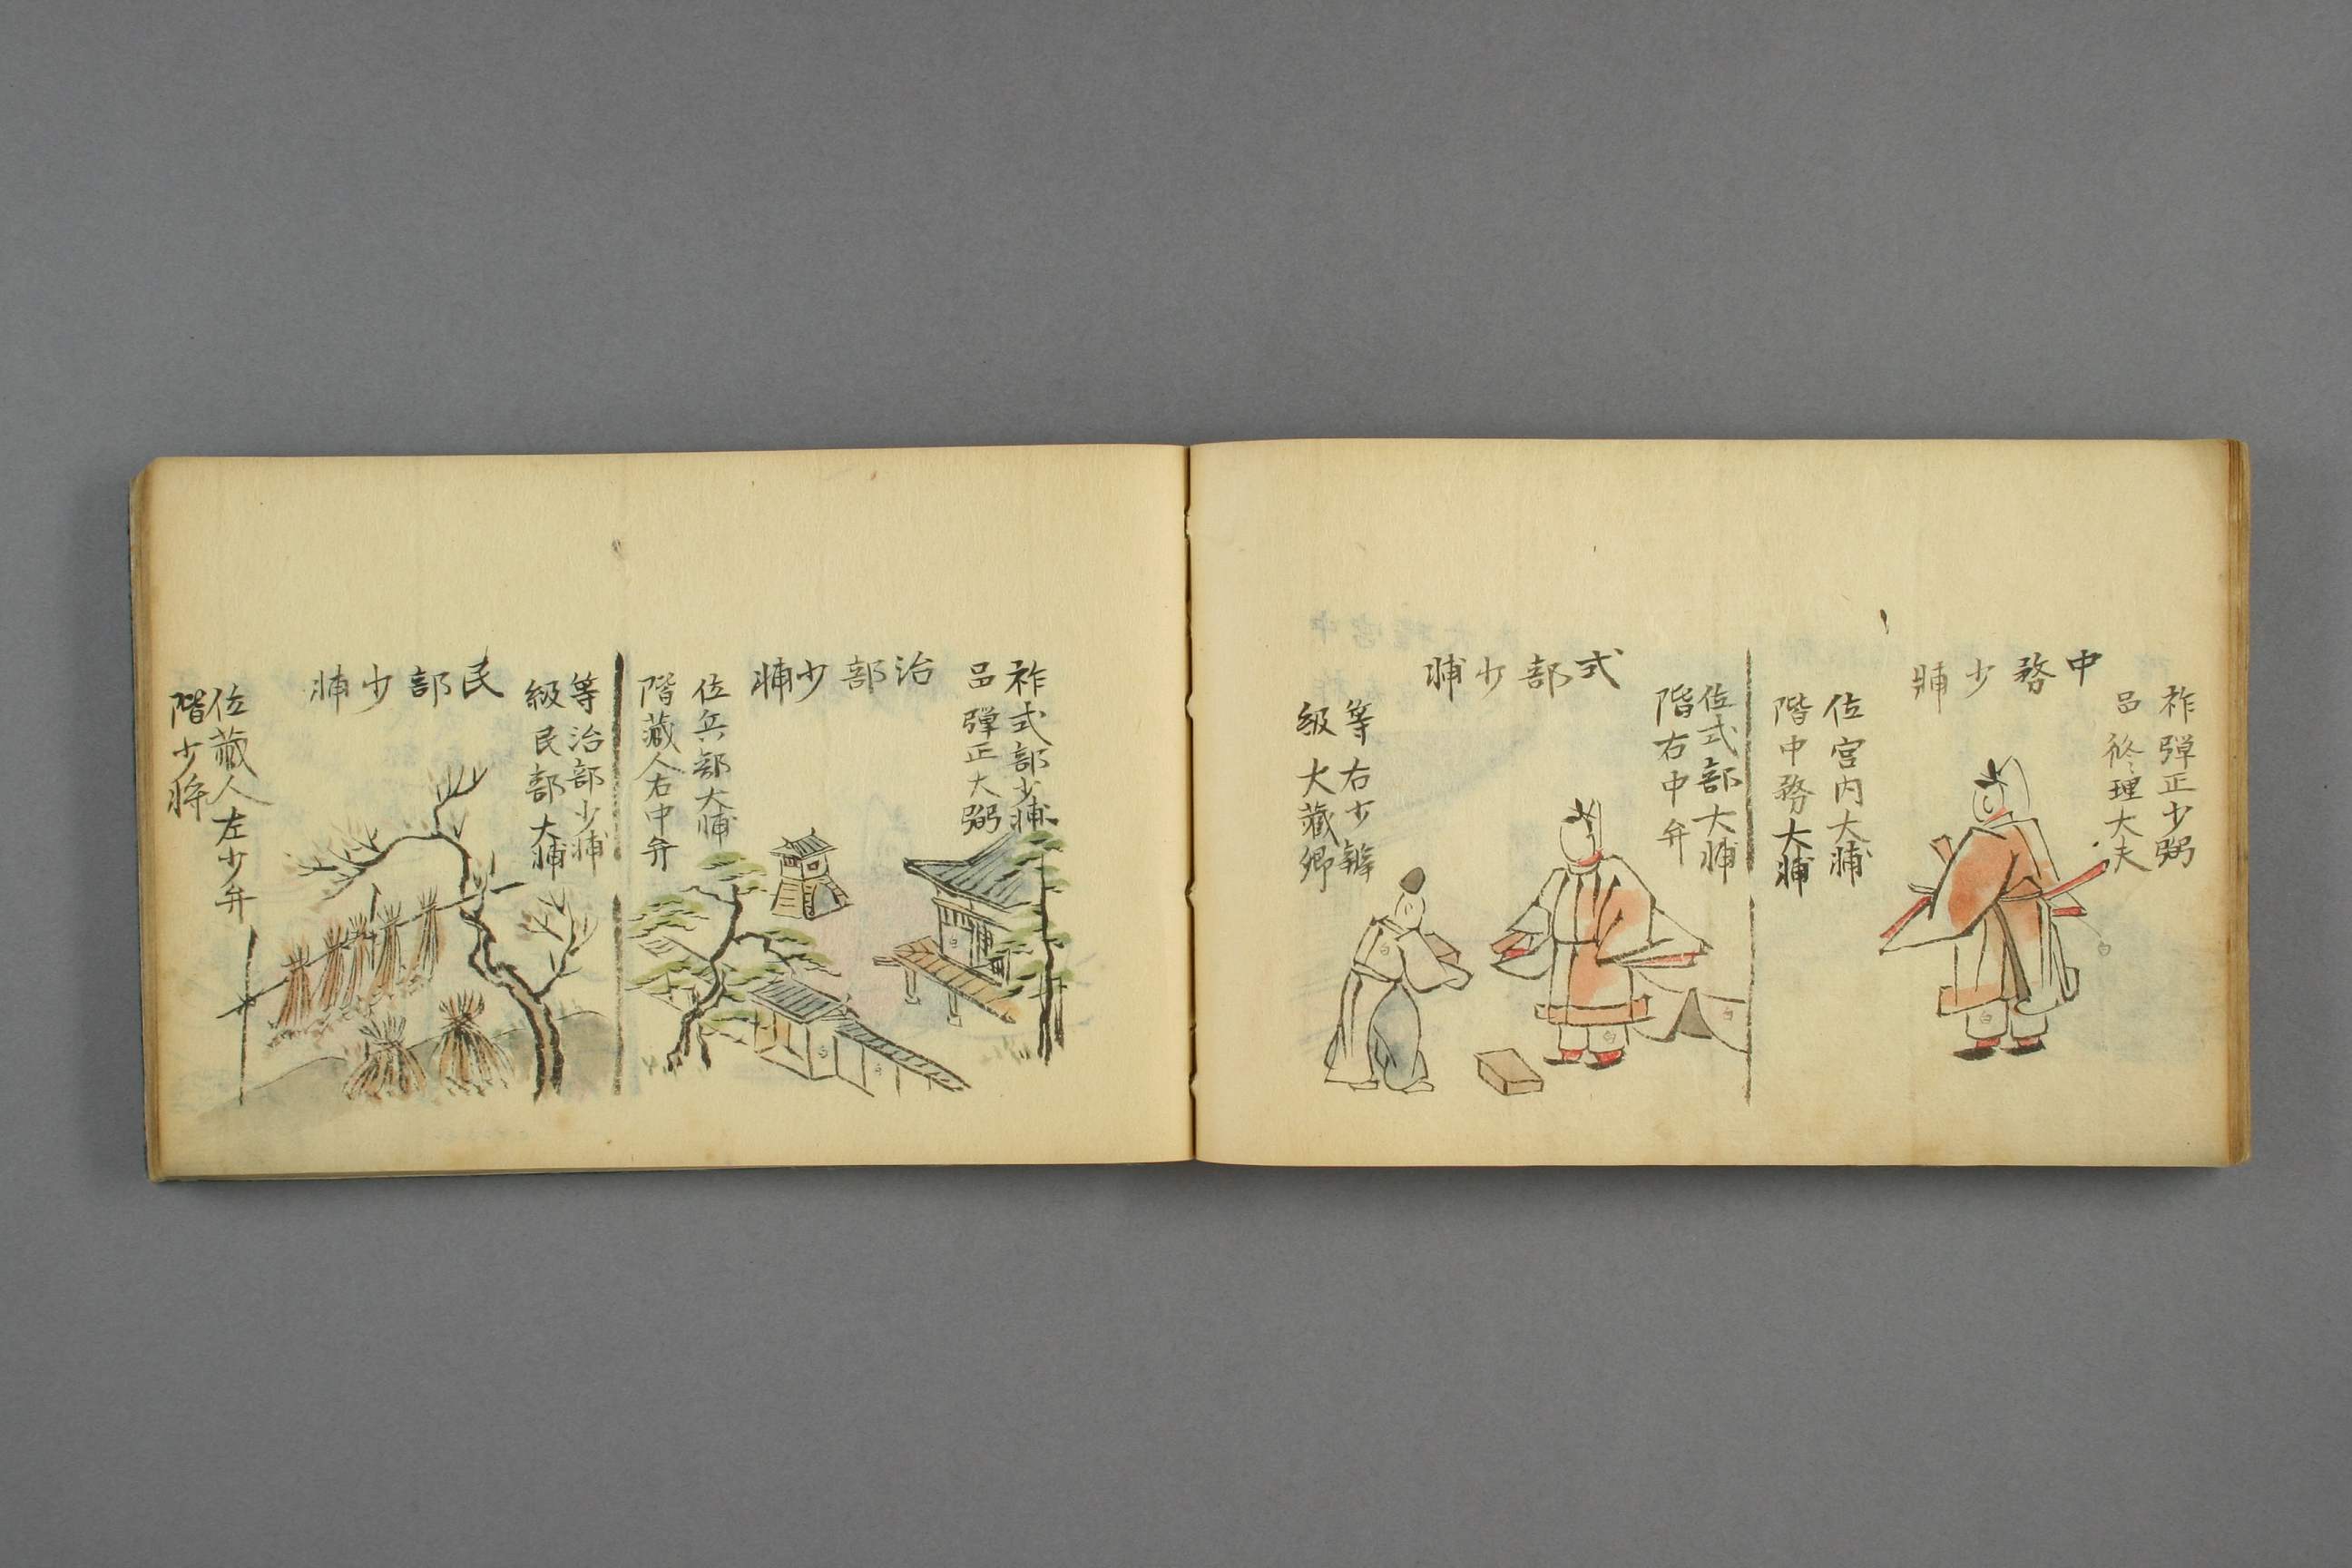 祚弾正少弼
呂修理大夫
中務少輔
位宮内大輔
階中務大輔
位式部大輔
階右中弁
式部少輔
等右少辨
級大藏卿
祚式部少輔
呂弾正大弼
治部少輔
位兵部大輔
階藏人右中弁
等治部少輔
級民部大輔
民部少輔
位藏人左少弁
階少将